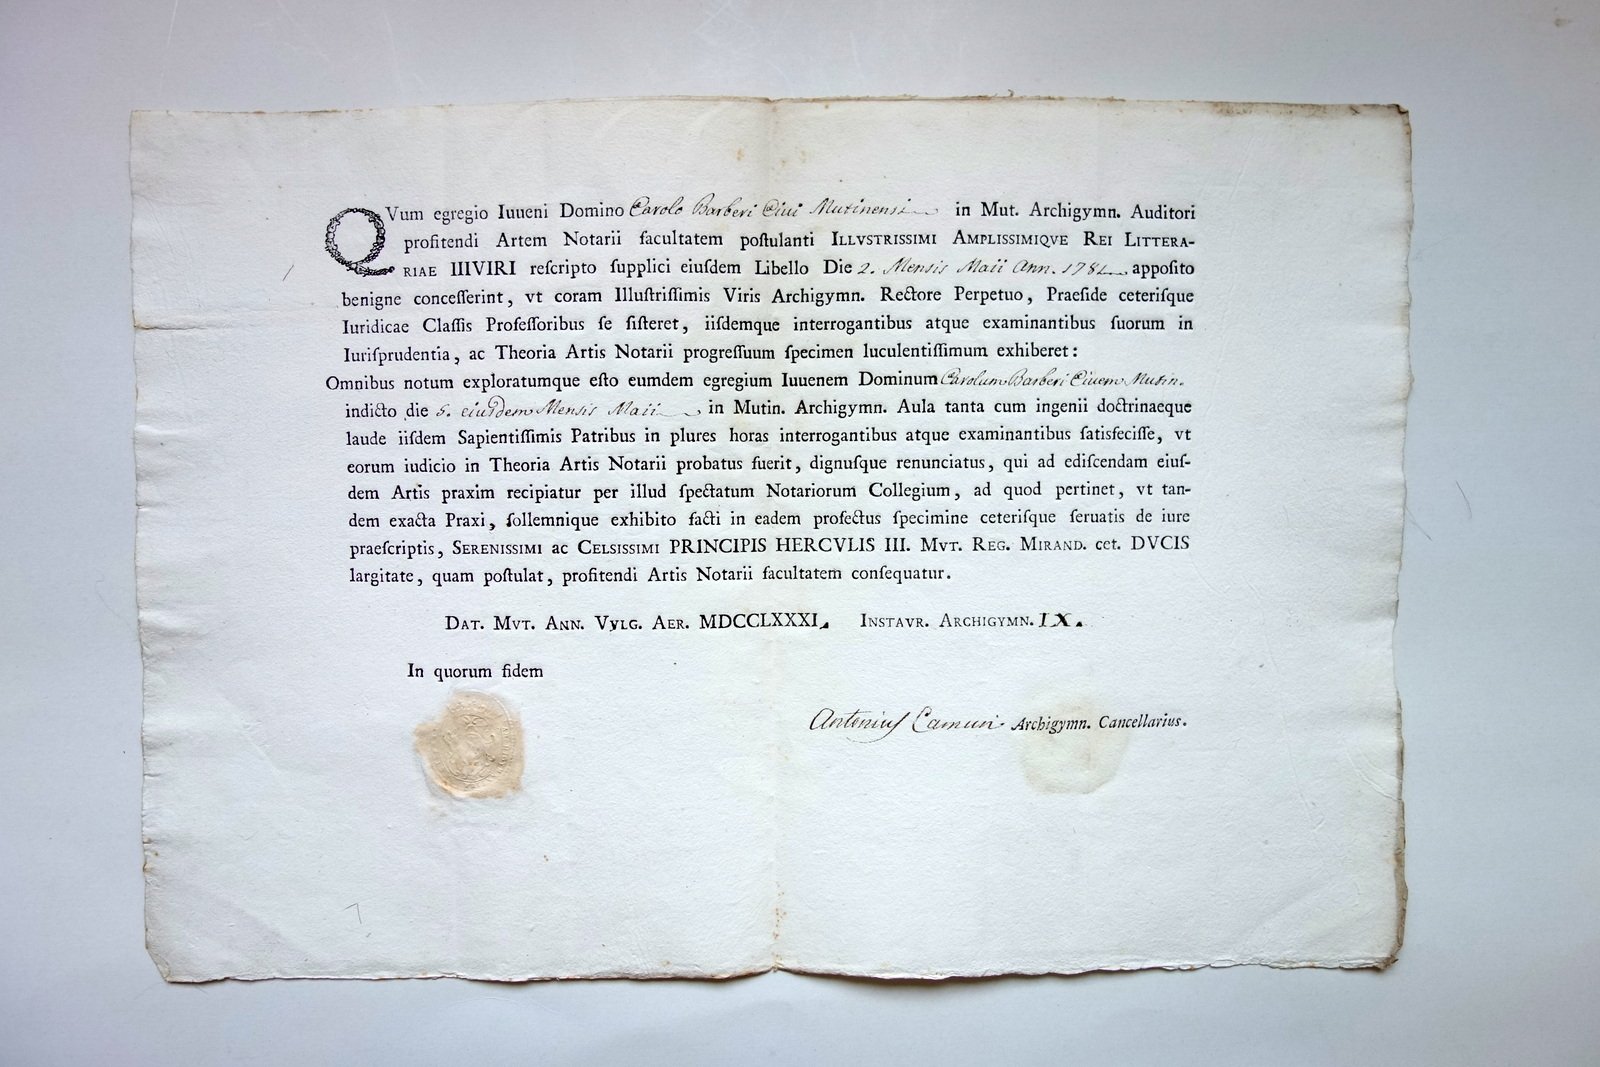 QVum egregio Iuueni Domino Carolo Barberi Ciui Mutinensi in Mut. Archigymn. Auditori
profitendi Artem Notarii facultatem poſtulanti ILLVSTRISSIMI AMPLISSIMIQVE REI LITTERA-
RIAE IIIVIRI reſcripto ſupplici eiuſdem Libello Die 2. Mensis Maii Ann. 1781 appoſito
benigne conceſſerint, vt coram Illuſtriſſimis Viris Archigymn. Rectore Perpetuo, Praeſide ceteriſque
Iuridicae Claſſis Profeſſoribus ſe ſiſteret, iiſdemque interrogantibus atque examinantibus ſuorum in
Iuriſprudentia, ac Theoria Artis Notarii progreſſuum ſpecimen luculentiſſimum exhiberet:
Omnibus notum exploratumque eſto eumdem egregium Iuuenem Dominum Carolum Barberi Ciuem Mutin.
indicto die 5. eiusdem Mensis Maii in Mutin. Archigymn. Aula tanta cum ingenii doctrinaeque
laude iiſdem Sapientiſſimis Patribus in plures horas interrogantibus atque examinantibus ſatisfeciſſe, vt
eorum iudicio in Theoria Artis Notarii probatus fuerit, dignuſque renunciatus, qui ad ediſcendam eiuſ-
dem Artis praxim recipiatur per illud ſpectatum Notariorum Collegium, ad quod pertinet, vt tan-
dem exacta Praxi, ſollemnique exhibito facti in eadem profectus ſpecimine ceteriſque ſeruatis de iure
praeſcriptis, SERENISSIMI ac CELSISSIMI PRINCIPIS HERCVLIS III. MVT. REG. MIRAND. cet. DVCIS
largitate, quam poſtulat, profitendi Artis Notarii facultatem conſequatur.
DAT. MVT. ANN. VVLG. AER. MDCCLXXXI. INSTAVR. ARCHIGYMN. IX.
In quorum fidem
Antonius Camuri Archigymn. Cancellarius.